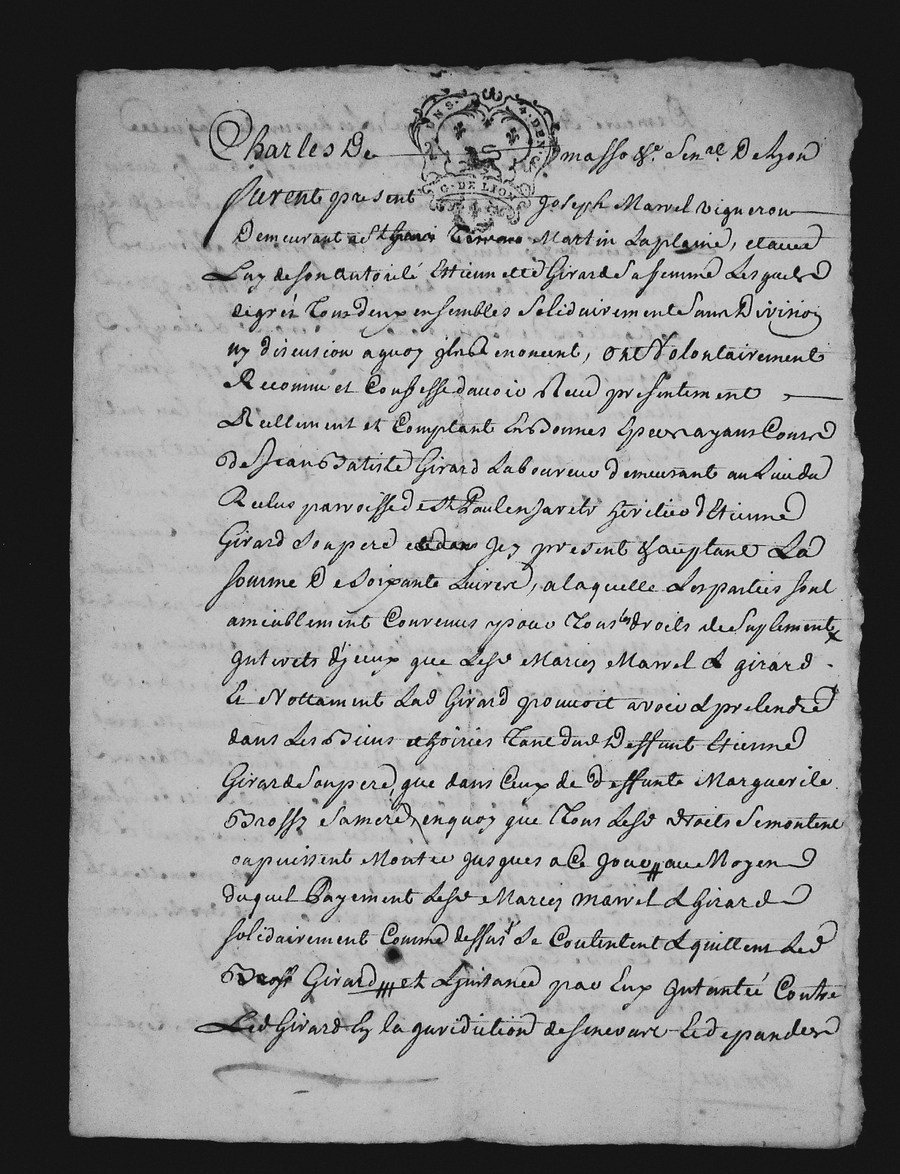 Charles De masso &c. Sen.al De lyon
furent present Joseph Marrel vigneron
Demeurant a St Martin Laplaine, et avec
Luy de son autorité Ettiennette Girard sa femme Lesquels
de gré Tous deux ensembles Solidairement Sans Divizion
ny discusion a quoy ils Renoncent, ont Volontairement
Reconnu et Confessé d'avoir Receu presentement
Reellement et Comptant En Bonnes Especes ayant Cours
de Jean Batiste Girard Laboureur demeurant au Lieu du
Reclus parroisse de St Paul en Jarets héritier d'Etienne
Girard Son pere Jcy present & acceptant La
somme De soixante Livres, a laquelle Les parties sont
amiablement Convenus pour Tous les droits de Suplement
Interets d'jceux que Lesd. Mariés Marrel & girard
Et Nottament Lad Girard pouvoit avoir & prelendre
dans Les Biens et hoiries Tant dud Deffunt Etienne
Girard Son pere, que dans Ceux de deffunte Marguerite
Brossy Sa mere, en quoy que Tous Lesd. droits Se montent
ou puissent Monter jusques a Ce jour au Moyen
duquel Payement Lesd. Mariés Marrel & Girard
solidairement Comme dessus Se Contentent & quittent Led
Girard et quittance par Eux Contre
Led Girard En la juridiction de Et depandances